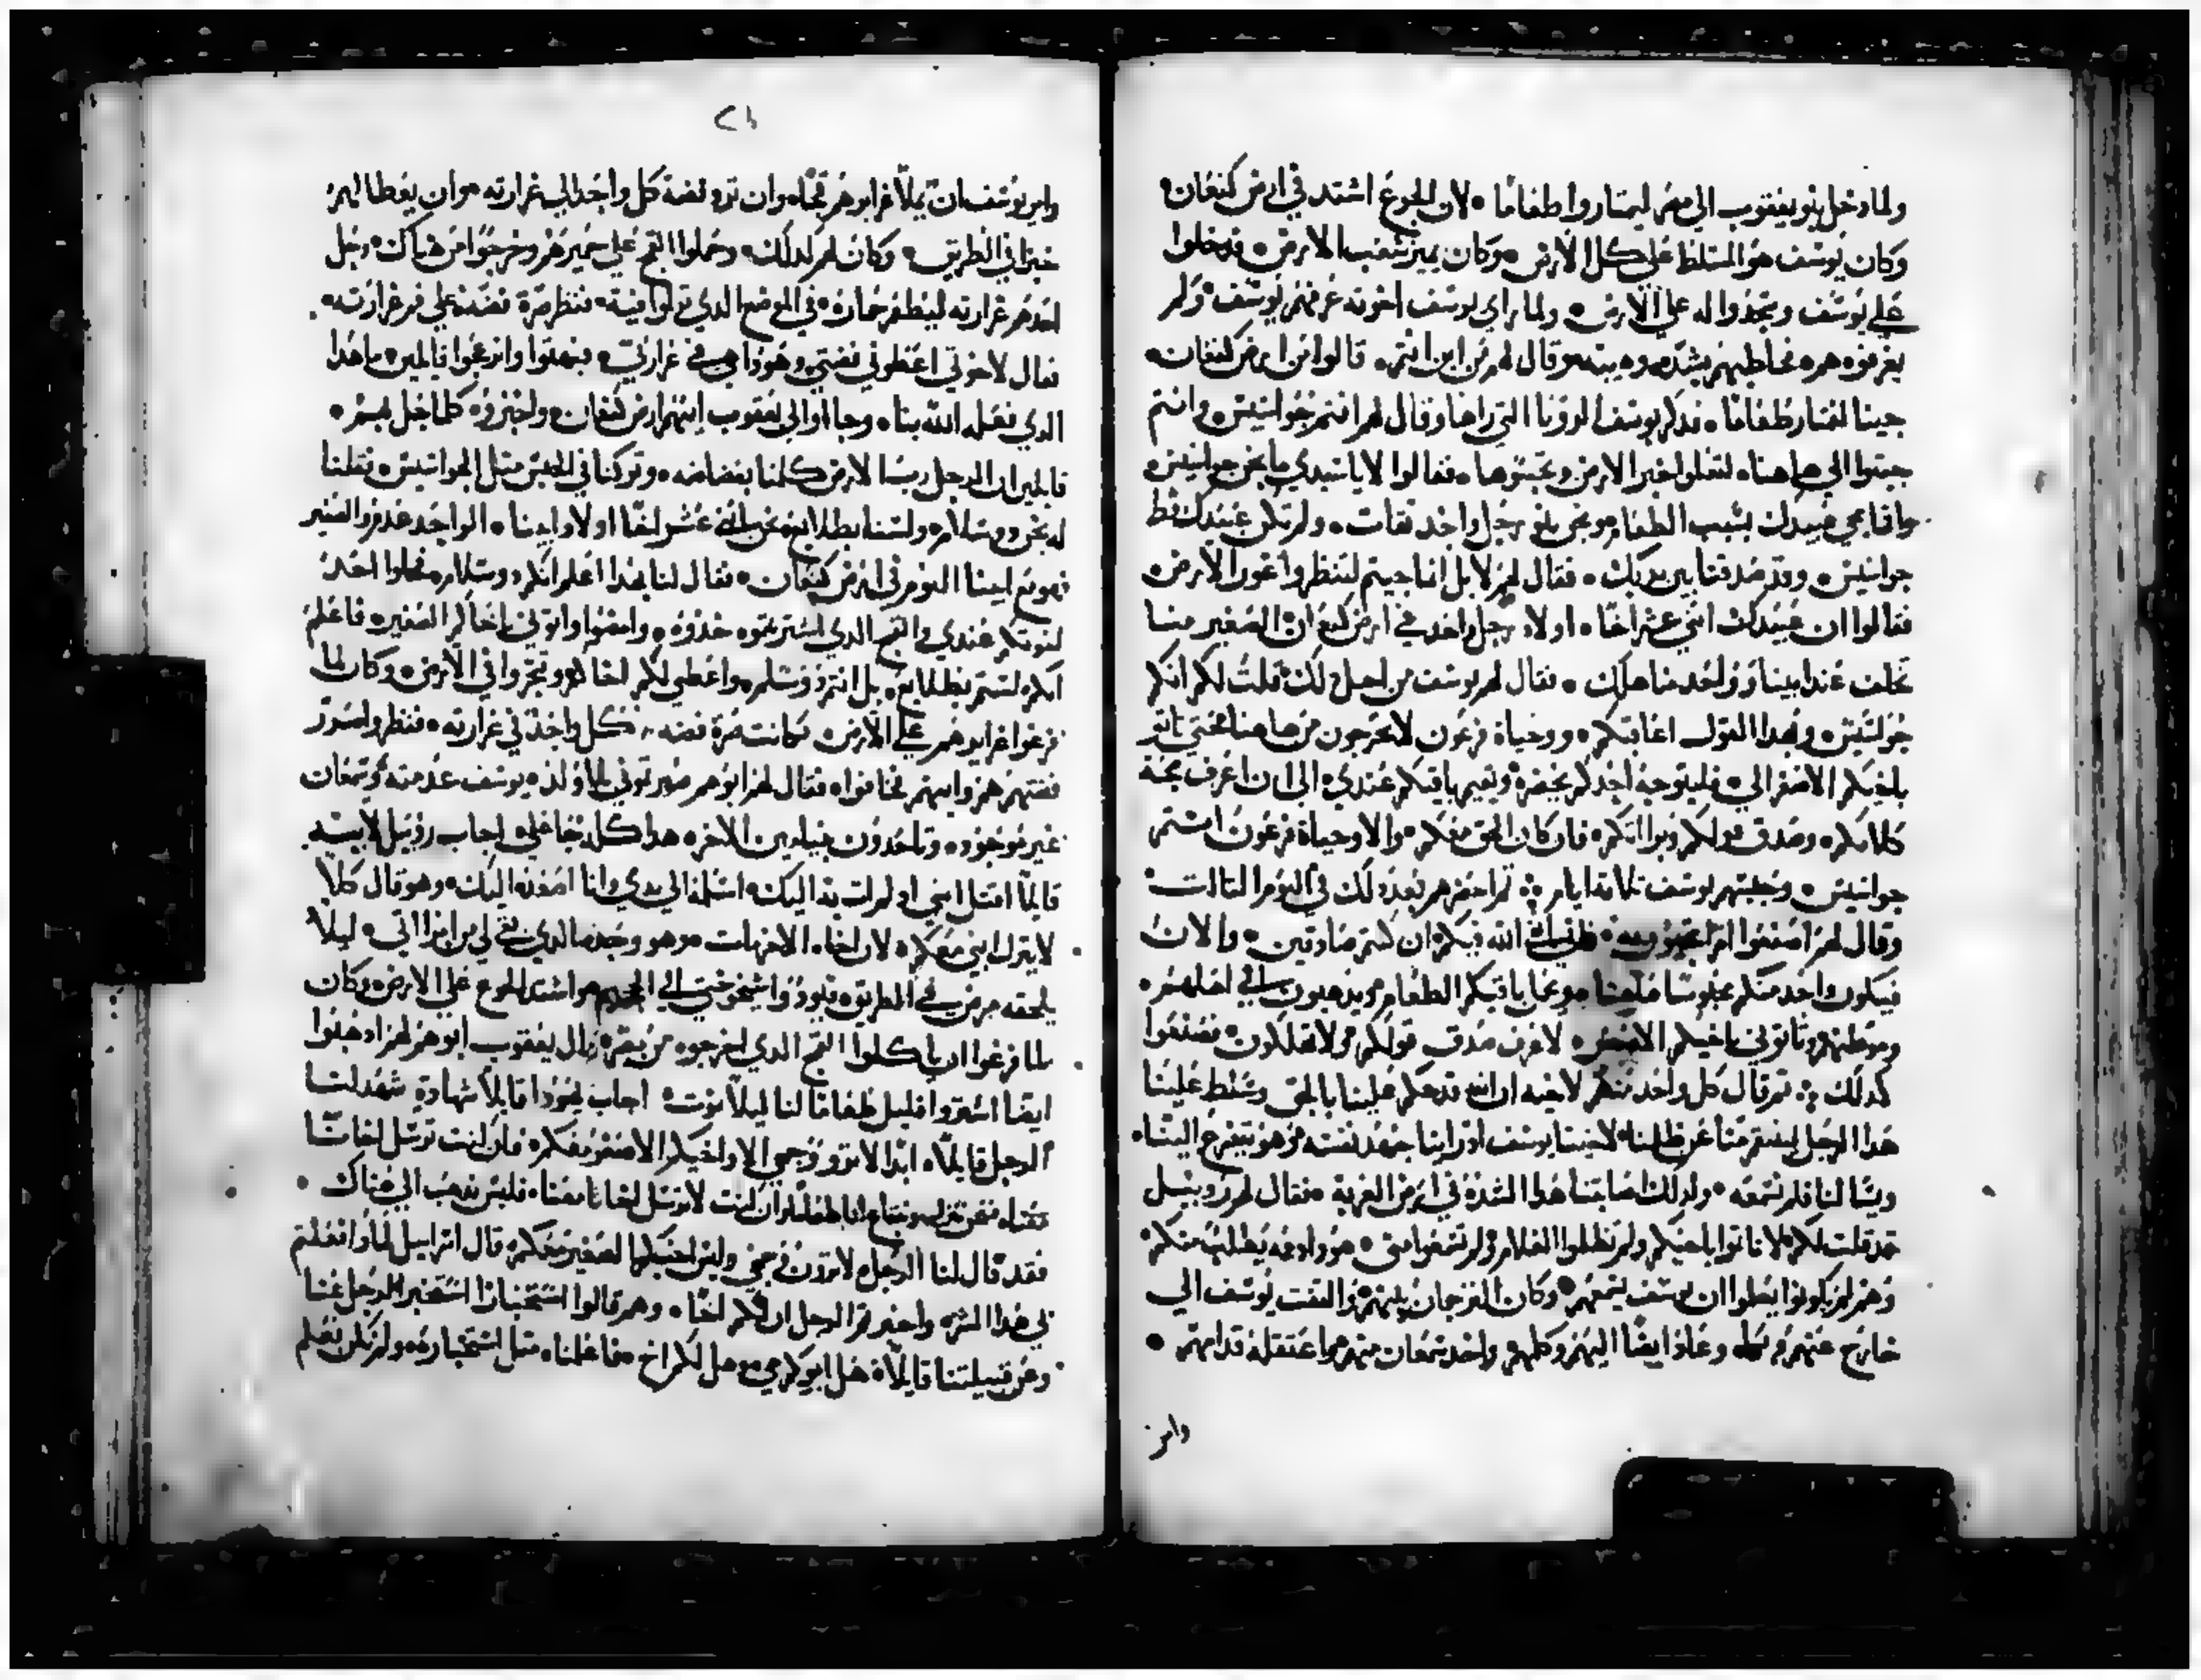 ولما دخل بنو يعقوب الي مصر ليمتاروا طعاما • لان الجوع اشتد في ارض كنعان •
وكان يوسف هو المتسلط علي كل الارض • وكان يمير شعب الارض • فدخلوا
علي يوسف وسجدوا له علي الارض • ولما راي يوسف اخوته عرفهم يوسف • ولم
يعرفوه هم • فخاطبهم بشده وهيبه وقال لهم من اين انتم • قالوا من ارض كنعان •
جينا لنمتار طعاما • فذكر يوسف الرويا التي راها وقال لهم انتم جواسيس • وانتم
جيتوا الي هاهنا • لتعلموا خبر الارض وتجسوها • فقالوا لا ياسيدي ما نحن جواسيس •
وانما جي عبيدك بسبب الطعام ونحن بنو رجل واحد ثقات • ولم تكن عبيدك قط
جواسيس • وقد صدقنا بين يديك • فقال لهم لا بل انما جيتم لتنظروا غور الارض •
فقالوا ان عبيدك اثني عشر اخا • اولاد رجل واحد في ارض كنعان الصغير منا
تخلف عند ابينا وواحد منا هلك • فقال لهم يوسف من اجل ذلك قلت لكم انكم
جواسيس • وبهذا القول اعاقبكم • ووحياة فرعون لا تخرجون من هاهنا حتي ياتي
باخيكم الاصغر الي • فليتوجه احدكم يحضره وتقيم باقيكم عندي • الي ان اعرف صحة
كلامكم • وصدق قولكم وبرااتكم • فان كان الحق معكم • والا وحياة فرعون انتم
جواسيس • وحبسهم يوسف ثلاثة ايام • ثم احضرهم بعد ذلك في اليوم الثالث •
وقال لهم اصنعوا الله فيكم ان كنتم صادقين • والان
فيكون واحد منكم محبوسا هاهنا • وباقيكم الطعام ويذهبون الي اهلهم •
وموطنهم وتاتوني باخيكم الاصغر • لاعرف صدق قولكم ولا تهلكون • فصنعوا
كذلك • ثم قال كل واحد منهم لاخيه ان الله قد حكم علينا بالحق وسلط علينا
هذا الرجل لينتقم منا عن ظلمنا لاخينا يوسف اذ راينا جهد نفسه وهو يتضرع الينا •
ويسالنا فلم نسمعه • ولذلك اصابتنا هذا الشدة في ارض الغربة • فقال لهم روبيل
قد قلت لكم لا تاتوا باخيكم ولم تظلموا الغلام ولم تسمعوا مني • هوذا دمه يطلب منكم •
وهم لم يكونوا يعلموا ان يوسف يسمعهم • وكان الترجمان بينهم • والتفت يوسف الي
خارج عنهم • وبكا • وعاد ايضا اليهم وكلمهم واخذ شمعان منهم واعتقله قدامهم •
وامر
وامر يوسف ان تملا غرايرهم قمحا • وان ترد فضة كل واحد الي غرارته • وان يعطا لهم
خبزا في الطريق • وكان لهم كذلك • وحملوا القمح علي حميرهم وخرجوا من هناك • وحل
احدهم غرارته ليطعم حماره • في الموضع الذي نزلوا فيه • فنظر صرة فضته علي فم غرارته •
فقال لاخوتي اعطوني فضتي وهوذا هي في غرارتي • فبهتوا وانزعجوا قايلين • ما هذا
الذي فعله الله بنا • وجااوا الي يعقوب ابيهم ارض كنعان • واخبروه كلما حل بهم •
قايلين ان الرجل رب الارض كلمنا بفضاضه • وتركنا في الحبس مثل الجواسيس • فقلنا
له نحن ذو سلامه ولسنا بطلايع نحن اثني عشر اخا اولاد ابينا • الواحد عدم والصغير
هو مع ابينا اليوم في ارض كنعان • فقال لنا بهذا اعلم انكم ذو سلامه • فخلوا احد
اخوتكم عندي • والقمح الذي اشتريتموه خذوه • وامضوا واتوني باخاكم الصغير • فاعلم
انكم لستم بطلايع • بل انتم ذو سلم • واعطي لكم اخاكم وتتجروا في الارض • وكان لما
فرغوا غرايرهم علي الارض • فكانت صرة فضه كل واحد في غرارته • فنظروا صرر
فضتهم هم وابيهم فخافوا • فقال لهم ابوهم صيرتوني بلا اولاد • يوسف عدمته وشمعان
غير موجود • وتاخذون بنيامين الاخر • هذا كله جا علي • اجاب روبيل لابيه •
قايلا اقتل ابني ان لم ات به اليك • اسلمه الي يدي وانا اصعده اليك • وهو قال كلا
لا ينزل ابني معكم • لان اخاه الاخر مات • وهو وحده الذي بقي لي من ابنااتي • ليلا
يلحقه مرض في الطريق • فتوردوا شيخوختي الي الجحيم • واشتد الجوع علي الارض • وكان
لما فرغوا ان ياكلوا القمح الذي اخرجوه من مصر • قال يعقوب ابوهم لهم اذهبوا
ايضا اشتروا قليل طعاما لنا ليلا نموت • اجاب يهوذا قايلا شهادة شهد لنا
الرجل قايلا • ابدا لا تروا وجهي الا واخيكم الاصغر معكم • فان كنت ترسل اخانا
معنا • فنحن ننزل ونبتاع لنا طعاما • وان كنت لا ترسل اخانا معنا • فليس نذهب الي هناك •
فقد قال لنا الرجل • لا ترون وجهي وليس اخيكم الصغير معكم • قال اسراييل لماذا فعلتم
لي هذا الشر • واخبرتم الرجل ان لكم اخا • وهم قالوا استخبارا استخبر الرجل عنا
وعن قبيلتنا قايلا • هل ابوكم حي • وهل لكم اخ • فاعلمناه مثل استخباره • ولم نكن نعلم